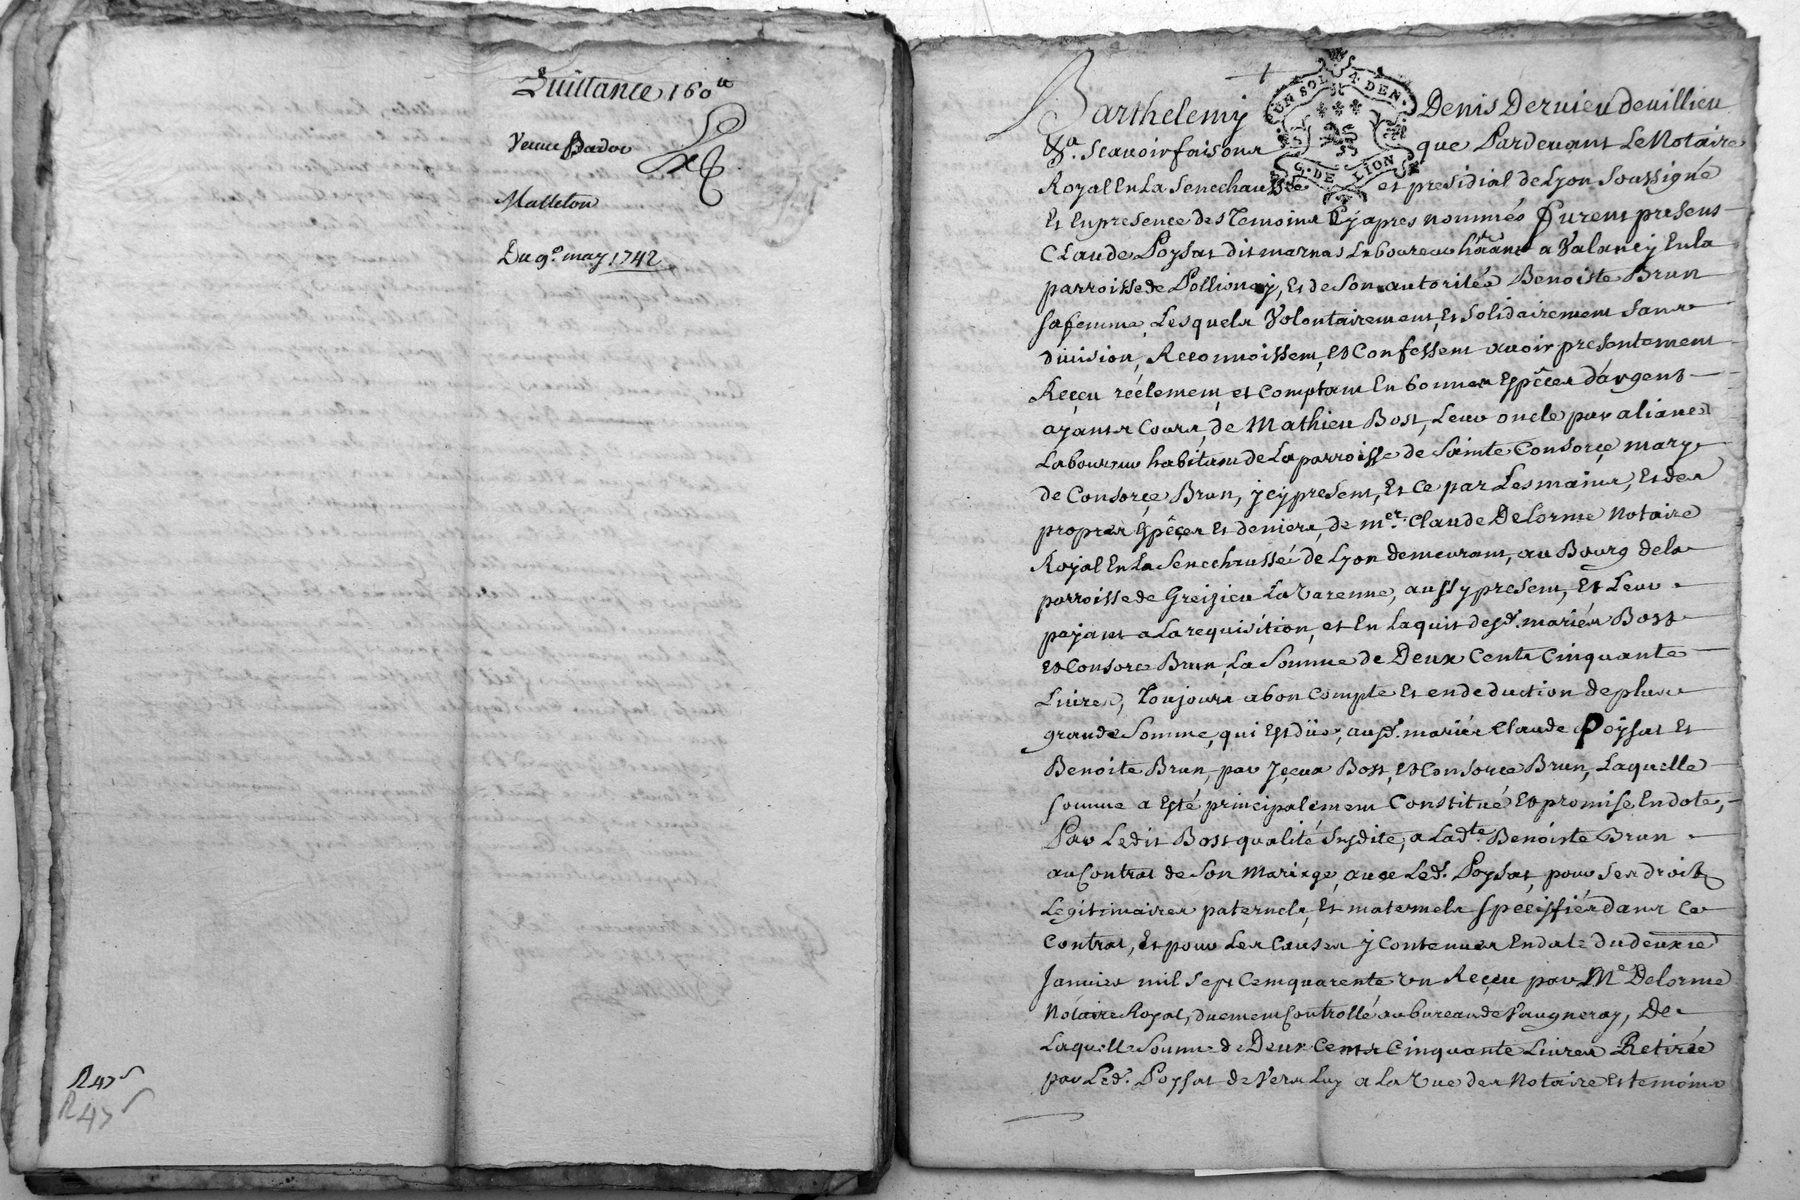 Quittance 160 ll
Veuve Badoc
Matteton
Du 9e. may 1742
R 47
R 47
UN SOL 4 DEN.
G. DE LION
Barthelemy Denis Dervieu devillieu
Xa. Scavoir faisons que Pardevant Le Notaire
Royal En La Senechaussée et presidial de Lyon Soussigné
Et En presence des Temoins Cy apres nommés Furent presens
Claude Poysat dit marnas Laboureur h'tant a Valancy En la
parroisse de Pollionay, Et de Son autorité Benoiste Brun
sa femme, Lesquels Volontairement, Et Solidairement Sans
division, Reconnoissent, Et Confessent avoir presentement
Reçu réelement et Comptant En bonnes Espêces d'argent
ayants Cours, de Mathieu Bost, Leur oncle par aliance
Laboureur habitant de La parroisse de Sainte Consorçe mary
de Consorçe Brun, jcy present, Et Ce par Les mains, Et des
propres Espêçes Et deniers, de mer. Claude Delorme Notaire
Royal En La Senechaussé de Lyon demeurant, au Bourg de la
parroisse de Greizieu La Varenne, aussy present, Et Leur
payant a La requisition, et En Laquit desd. mariés Bost
Et Consorce Brun, La Somme de Deux Cents Cinquante
Livres, Toujours a bon Compte Et en deduction de plus
grande Somme, qui Est düe, ausd. mariés Claude Poysat Et
Benoite Brun, par Jçeux Bost, Et Consorce Brun, Laquelle
somme a Esté principalement Constitué Et promise En dote,
Par Ledit Bost qualité susdite, a Ladte. Benoiste Brun
au Contrat de Son Mariage, avec Led. Poysat, pour Ses droits
Legitimaires paternels, Et maternels Specisfiés dans Ce
Contrat, Et pour Les Causes y Contenues En date du deuxie
Janvier mil Sept Cent quarante Un Reçeu par Me Delorme
Notaire Royal, duement Controllé au bureau de Vaugneray, De
Laquelle Somme de Deux Cents Cinquante Livres Retirée
par Led. Poysat de Vers Luy a La Vue des Notaire Et temoins